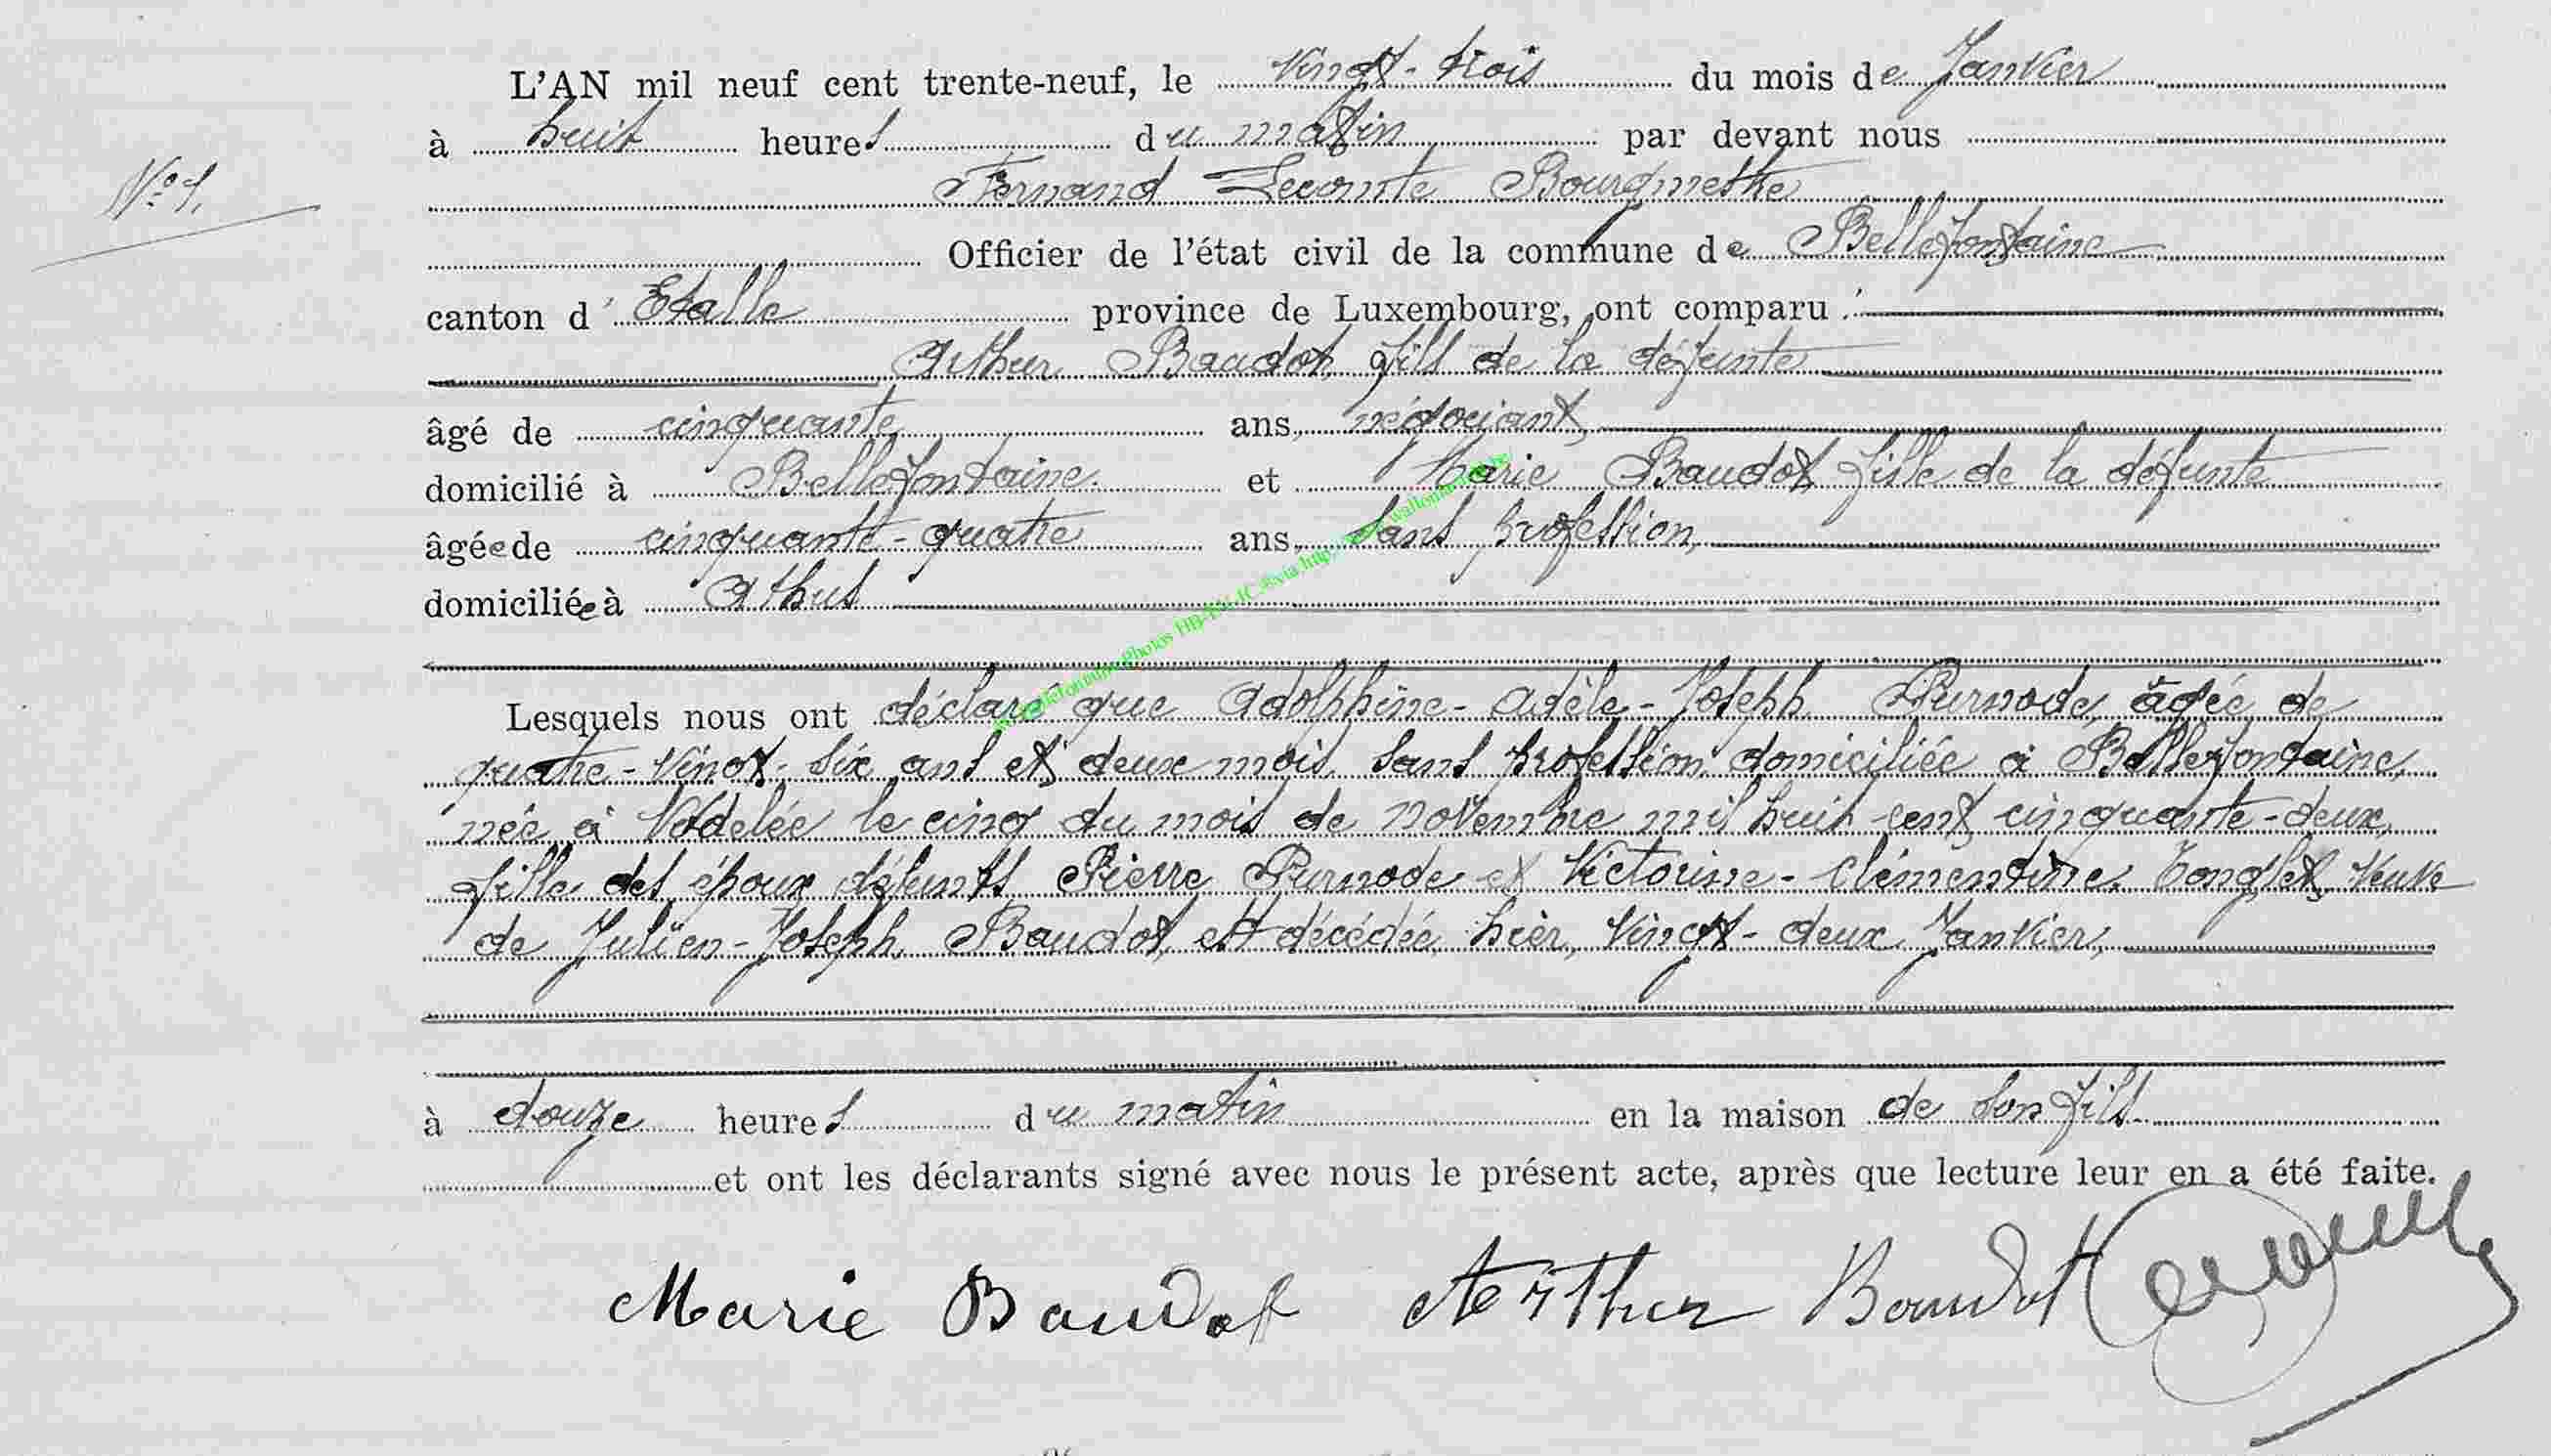 L'AN mil neuf cent trente-neuf, le vingt-trois du mois de Janvier
à huit heures du matin par devant nous
N° 1.
Fernand Lecomte Bourgmestre
Officier de l'état civil de la commune de Bellefontaine
canton d' Etalle province de Luxembourg, ont comparu :
Arthur Baudot, fils de la défunte
âgé de cinquante ans, négociant,
domicilié à Bellefontaine. et Marie Baudot fille de la défunte
âgée de cinquante-quatre ans, sans profession,
domiciliée à Athus
Lesquels nous ont déclaré que Adolphine-Adèle-Joseph Purnode, âgée de
quatre-vingt-six ans et deux mois, sans profession, domiciliée à Bellefontaine,
née à Vodelée le cinq du mois de novembre mil huit cent cinquante-deux,
fille des époux défunts Pierre Purnode et Victorine-Clémentine Tonglet, veuve
de Julien-Joseph Baudot, est décédée hier, vingt-deux Janvier,
à douze heures du matin en la maison de son fils
et ont les déclarants signé avec nous le présent acte, après que lecture leur en a été faite.
Marie Baudot Arthur Baudot